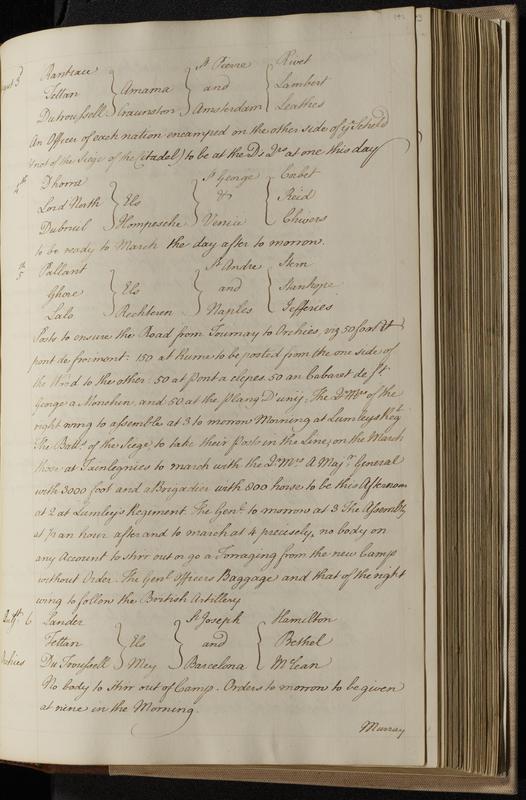 3d Rantzau St Pierre Rivet
Fettan Amama and Lambert
Du troussell Craunston Amsterdam Leathes
An Officer of each nation encamped on the other side of ye Scheld
(not of the Siege of the Citadel) to be at the Ds Qrs at one this day
4th Dhona St George Corbet
Lord North Els & Reid
Dubreuil Hompesche Venice Chivers
to be ready to March the day after to morrow.
5th Pallant St Andre Kern
Ghore Els and Stanhope
Lalo Rechteren Naples Jefferies
Posts to ensure the Road from Tournay to Orchies viz 50 foot at
pont de froemont: 150 at Rume to be posted from the one side of
the Wood to the other: 50 at pont a 50 an Cabaret de St
George a Monchin, and 50 at the The Qr Mrs of the
right wing to assemble at 3 to morrow Morning at Lumleys Regt
The Batts of the Siege, to take their Posts in the Line, on the March
those at Taintegnies to march with the Qr Mrs A Majr General
with 3000 foot and a Brigadier with 800 horse to be this Afternoon
at 2 at Lumley's Regiment. The Genl to morrow at 3 The Assembly
at ½ an hour after and to march at 4 precisely, no body on
any Account to stirr out or go a Forraging from the new Camp
without Order. The Genl Officers Baggage and that of the right
wing to follow the Brittish Artillery
6 Lander St Joseph Hamilton
Fettan Els and Bethel
Orchies Du Troussell Mey Barcelona McLean
No body to stirr out of Camp. Orders to morrow to be given
at nine in the Morning.
Murray